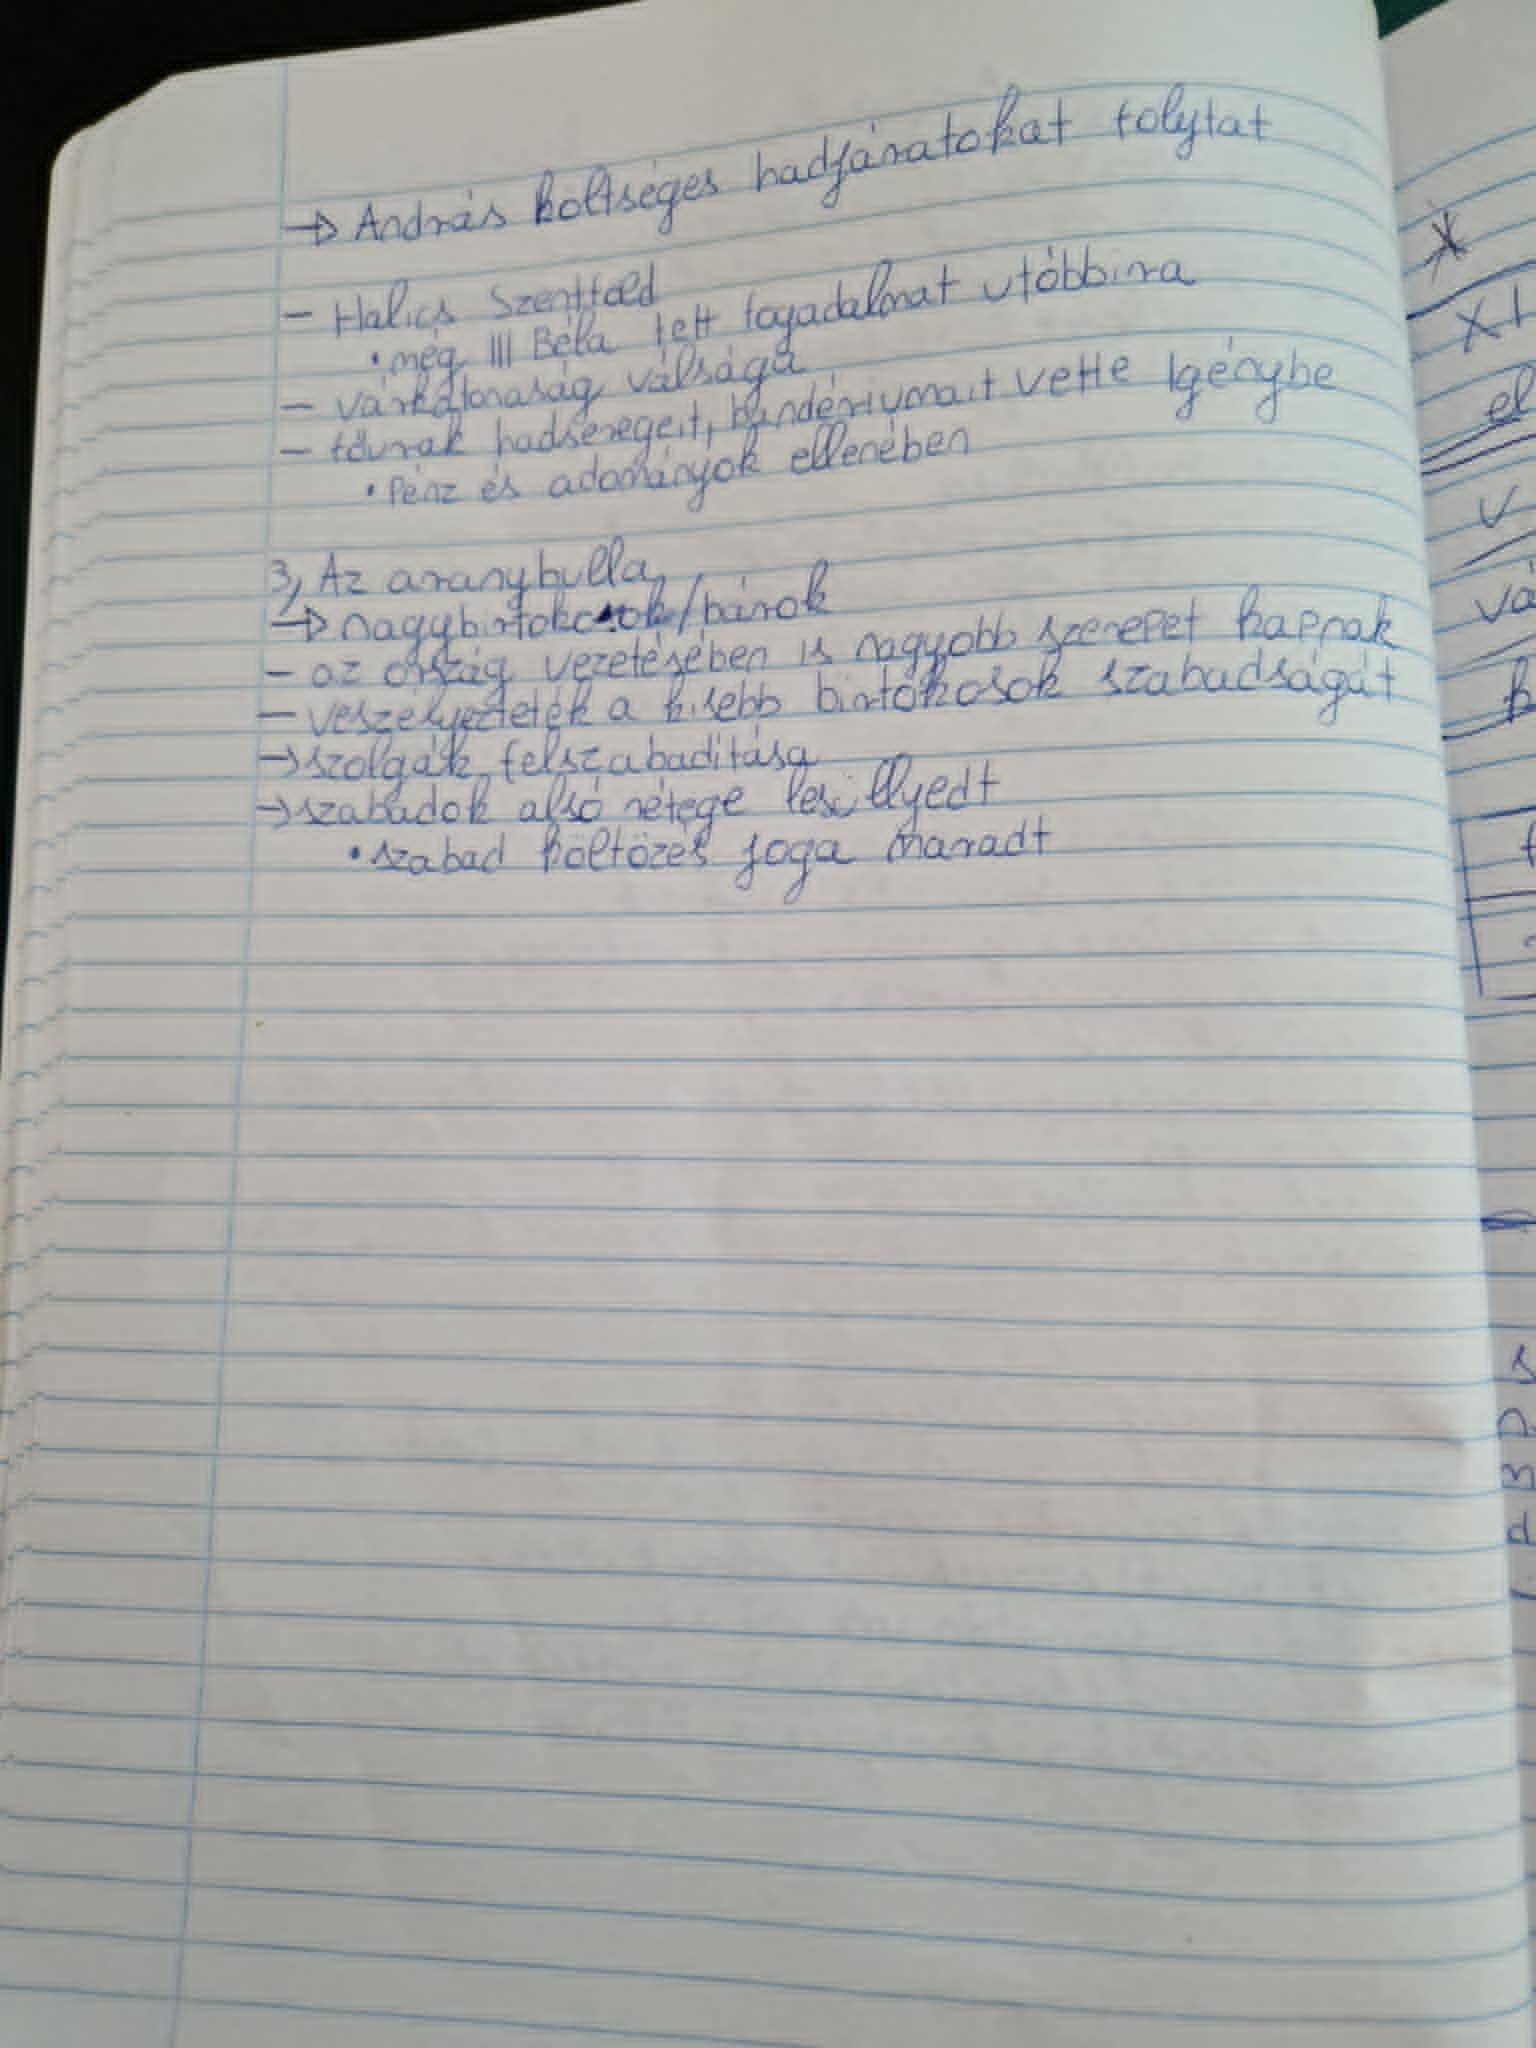 → András költséges hadjáratokat folytat
- Halics Szentföld
• még III Béla tett fogadalmat utóbbira
- várkatonaság válsága
- főurak hadseregeit, bandériumait vette Igénybe
• Pénz és adományok ellenében
3, Az aranybulla
→ nagybirtokosok/bárok
- az ország vezetésében is nagyobb szerepet kapnak
- veszélyeztették a kisebb birtokosok szabadságát
→ szolgák felszabadítása
→ szabadok alsó rétege lesüllyedt
• szabad költözés joga maradt